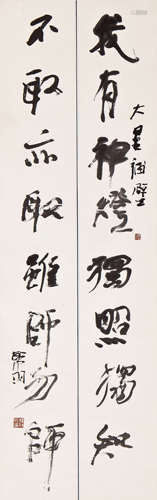 我有神燈獨照獨知
不取亦取雖師勿師